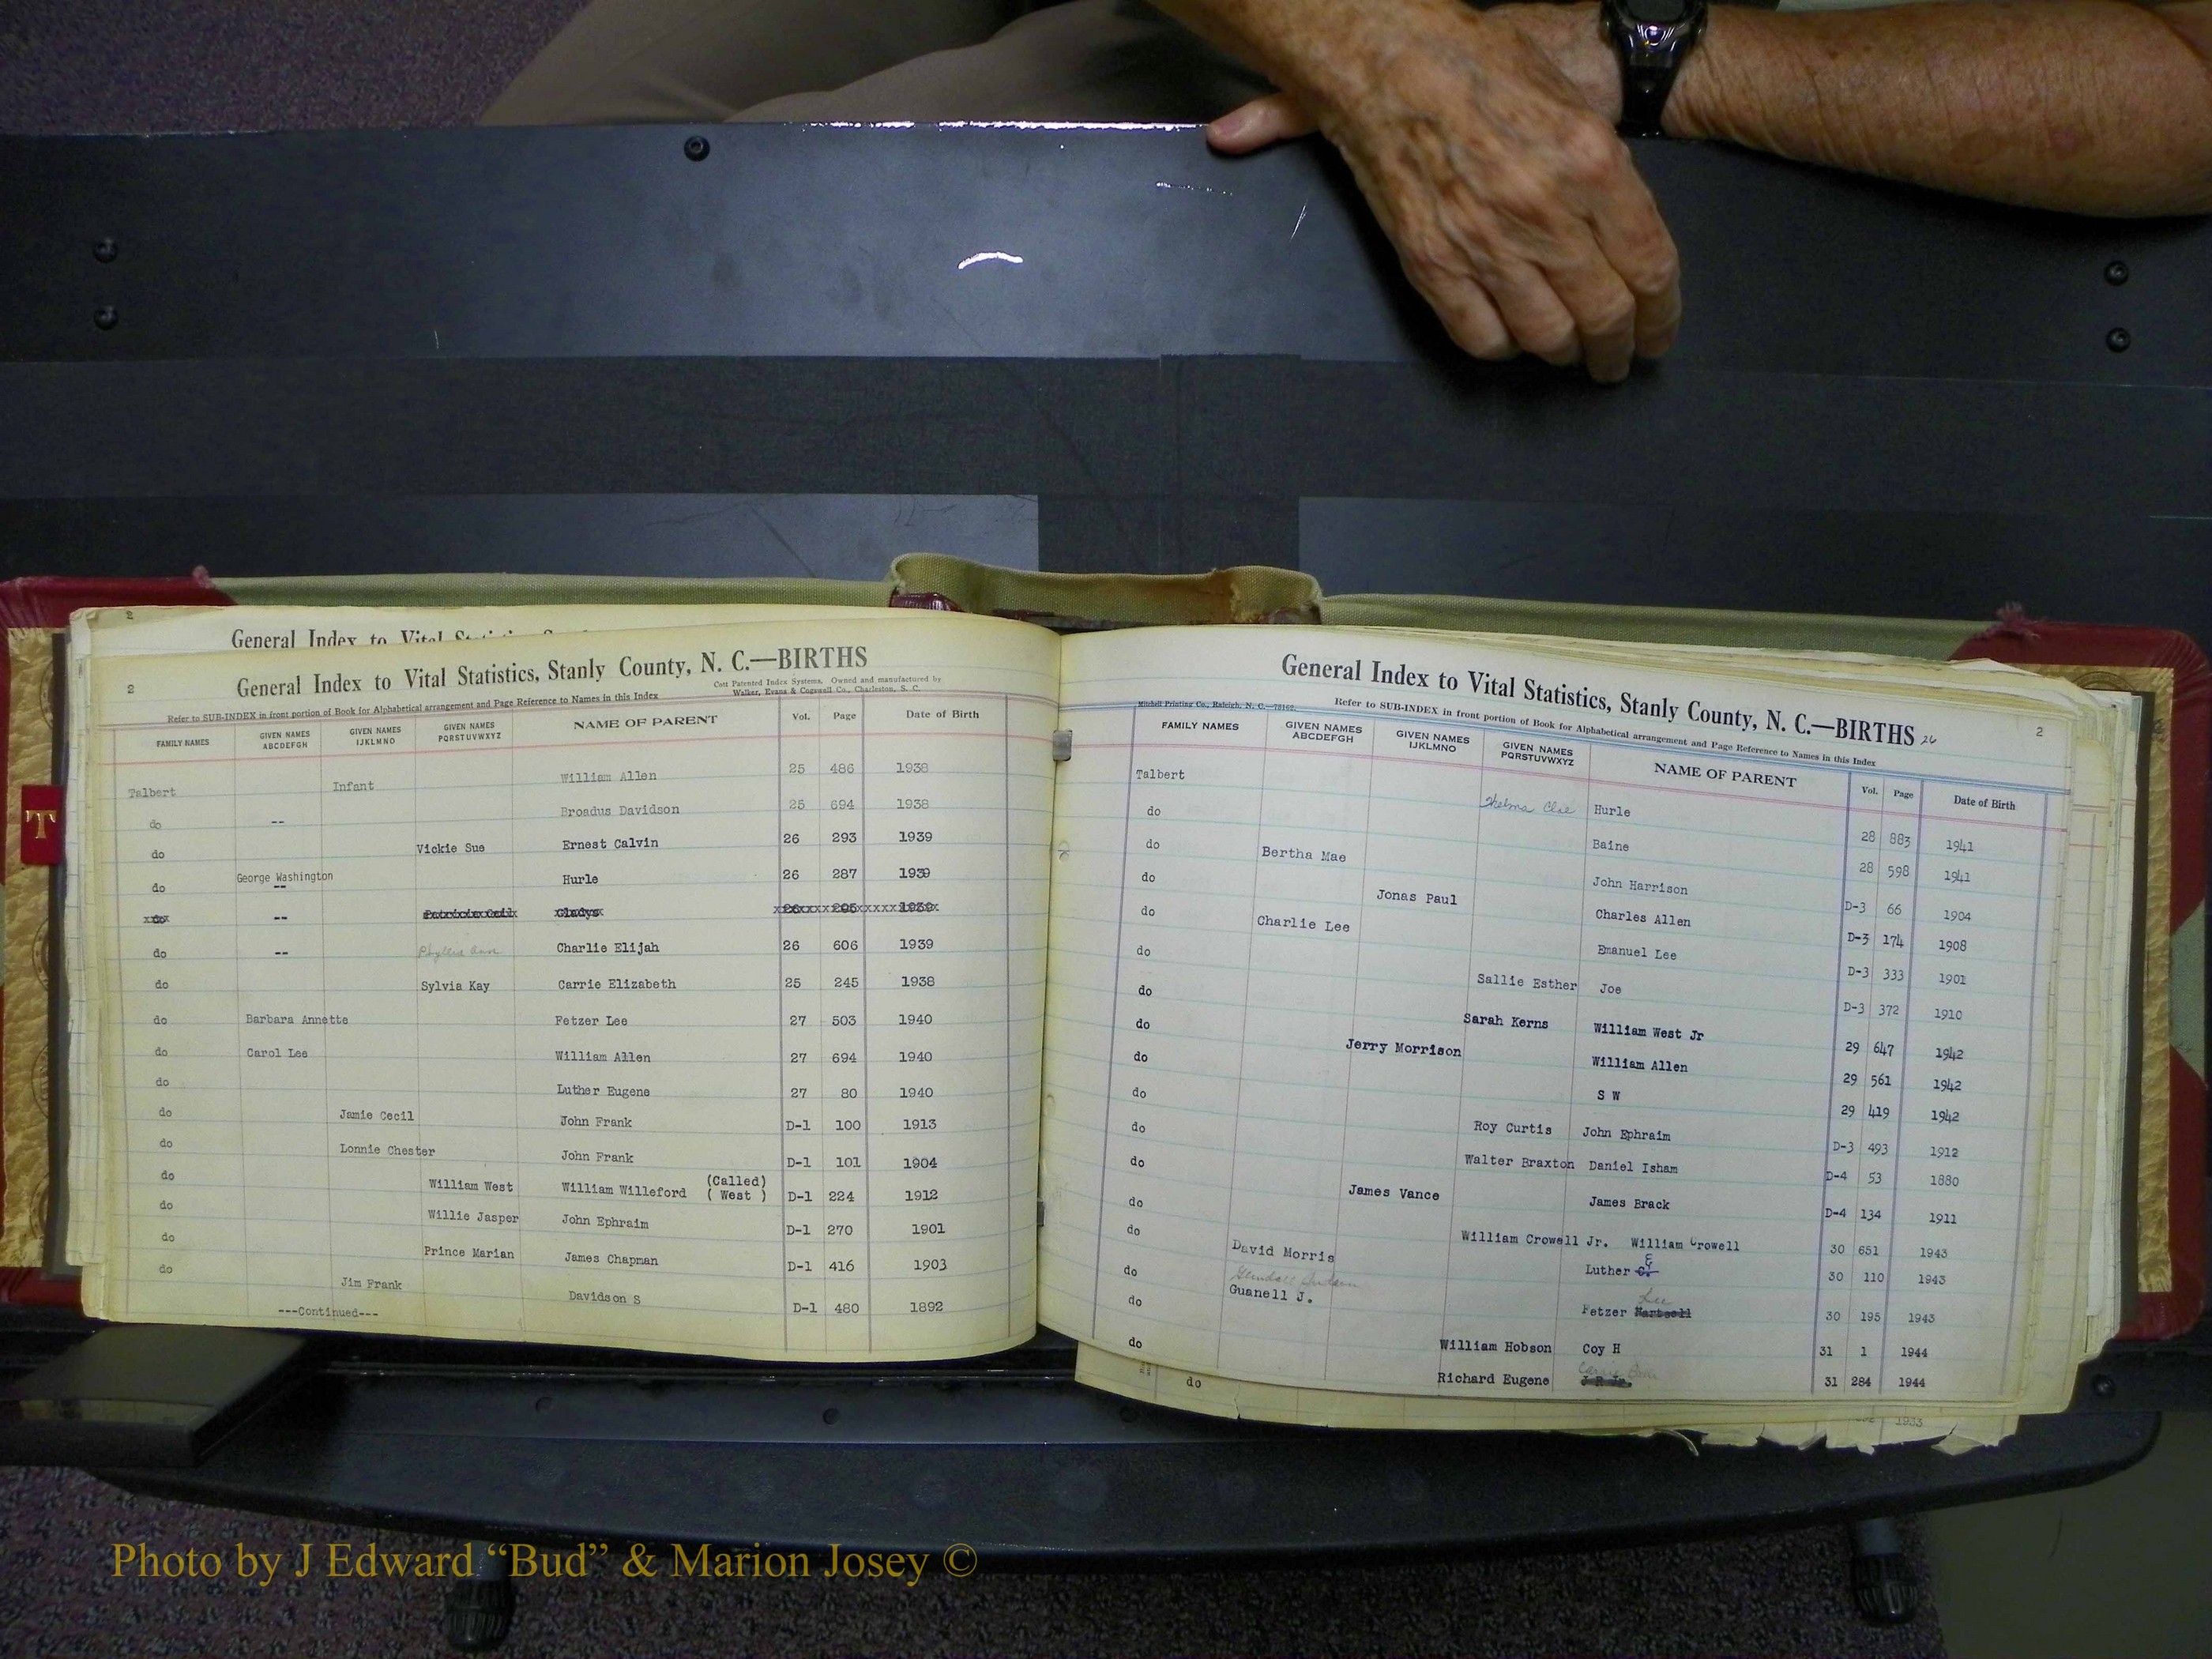 2
General Index to Vital Statistics
2
General Index to Vital Statistics, Stanly County, N. C.—BIRTHS
Cott Patented Index Systems, Owned and manufactured by
Walker, Evans & Cogswell Co., Charleston, S. C.
Refer to SUB-INDEX in front portion of Book for Alphabetical arrangement and Page Reference to Names in this Index
FAMILY NAMES GIVEN NAMES ABCDEFGH GIVEN NAMES IJKLMNO GIVEN NAMES PQRSTUVWXYZ NAME OF PARENT Vol. Page Date of Birth
Talbert Infant William Allen 25 486 1938
do -- Broadus Davidson 25 694 1938
do Vickie Sue Ernest Calvin 26 293 1939
do George Washington -- Hurle 26 287 1939
do -- Gladys 26 1939
do -- Phyllis Ann Charlie Elijah 26 606 1939
do Sylvia Kay Carrie Elizabeth 25 245 1938
do Barbara Annette Fetzer Lee 27 503 1940
do Carol Lee William Allen 27 694 1940
do Luther Eugene 27 80 1940
do Jamie Cecil John Frank D-1 100 1913
do Lonnie Chester John Frank D-1 101 1904
do William West William Willeford (Called) ( West ) D-1 224 1912
do Willie Jasper John Ephraim D-1 270 1901
do Prince Marian James Chapman D-1 416 1903
do Jim Frank Davidson S D-1 480 1892
---Continued---
T
General Index to Vital Statistics, Stanly County, N. C.—BIRTHS 26
2
Mitchell Printing Co., Raleigh, N. C.—73162.
Refer to SUB-INDEX in front portion of Book for Alphabetical arrangement and Page Reference to Names in this Index
FAMILY NAMES GIVEN NAMES ABCDEFGH GIVEN NAMES IJKLMNO GIVEN NAMES PQRSTUVWXYZ NAME OF PARENT Vol. Page Date of Birth
Talbert Thelma Hurle 28 883 1941
do Baine 28 598 1941
do Bertha Mae John Harrison D-3 66 1904
do Jonas Paul Charles Allen D-3 174 1908
do Charlie Lee Emanuel Lee D-3 333 1901
do Sallie Esther Joe D-3 372 1910
do Sarah Kerns William West Jr 29 647 1942
do Jerry Morrison William Allen 29 561 1942
do S W 29 419 1942
do Roy Curtis John Ephraim D-3 493 1912
do Walter Braxton Daniel Isham D-4 53 1880
do James Vance James Brack D-4 134 1911
do William Crowell Jr. William Crowell 30 651 1943
do David Morris Luther C. E 30 110 1943
do Guanell J. Fetzer Hartsell Lee 30 195 1943
do William Hobson Coy H 31 1 1944
do Richard Eugene J R Jr. 31 284 1944
do
1933
Photo by J Edward “Bud” & Marion Josey ©